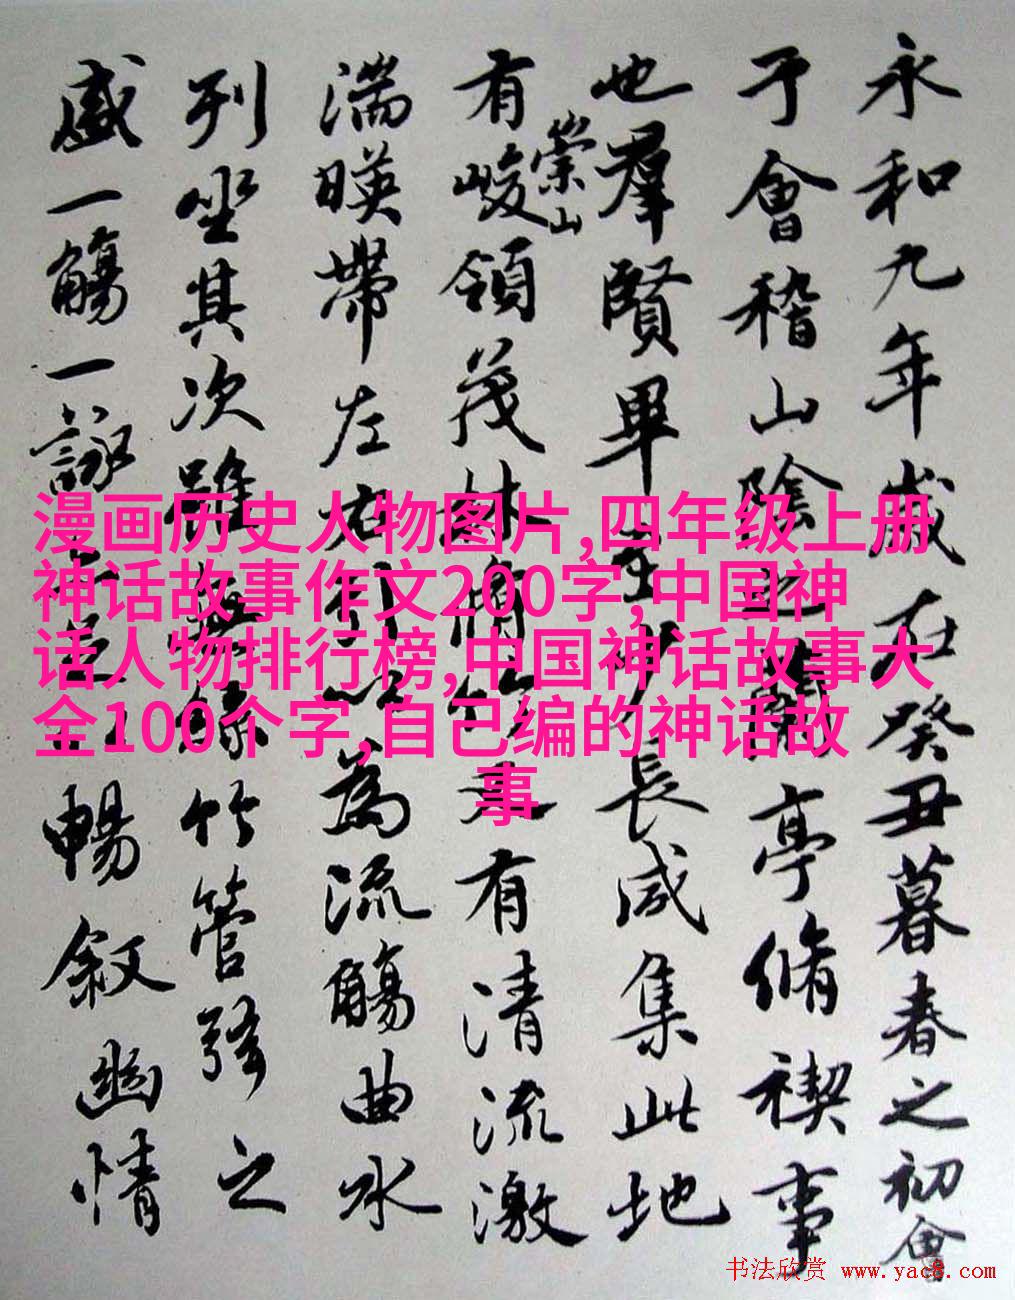 永和九年歲在癸丑暮春之初會
于會稽山陰之蘭亭脩禊事
也羣賢畢至少長咸集此地
有崇山峻領茂林脩竹又有清流激
湍暎帶左右引以為流觴曲水
列坐其次雖無絲竹管弦之
盛一觴一詠亦足以暢敘幽情
漫画历史人物图片,四年级上册
神话故事作文200字,中国神
话人物排行榜,中国神话故事大
全100个字,自己编的神话故
事
书法欣赏 www.yac8.com